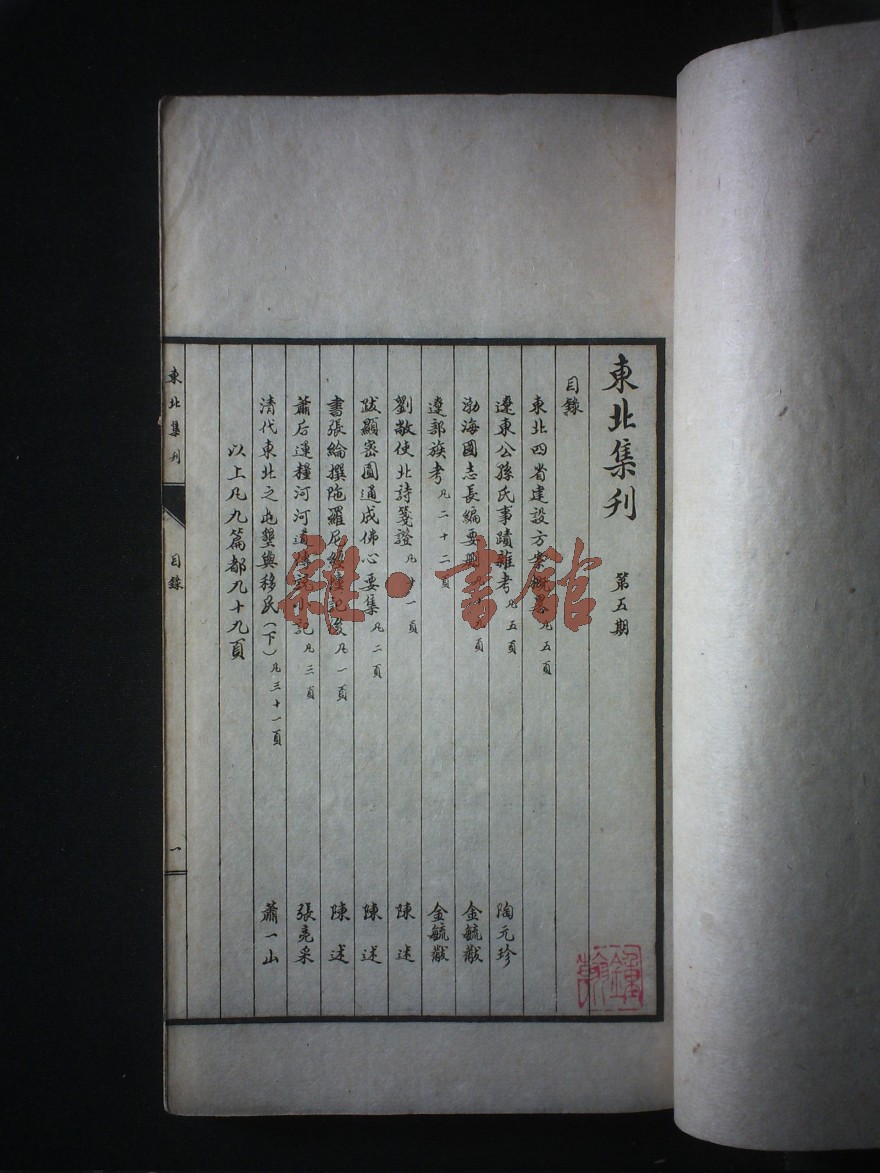 東北集刊 第五期
目錄
東北四省建設方案概畧 凡五頁
遼東公孫氏事蹟雜考 凡五頁 陶元珍
渤海國志長編要刪 凡十九頁 金毓黻
遼郭族考 凡二十二頁 金毓黻
劉敞使北詩箋證 凡十一頁 陳述
跋顯密圓通成佛心要集 凡二頁 陳述
書張綸撰陁羅尼經幢記後 凡一頁 陳述
蕭后運糧河河道傳說小記 凡三頁 張亮采
清代東北之屯墾與移民(下) 凡三十一頁 蕭一山
以上凡九篇都九十九頁
東北集刊 目錄 一
雜·書館